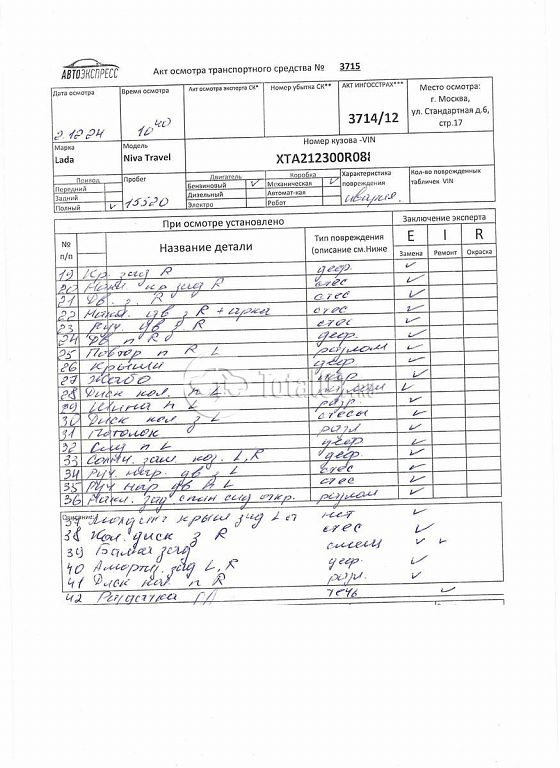 АВТОЭКСПРЕСС
Акт осмотра транспортного средства № 3715
Дата осмотра
2.12.24
Время осмотра
10 40
Акт осмотра эксперта СК*
Номер убытка СК**
АКТ ИНГОССТРАХ***
3714/12
Место осмотра:
г. Москва,
ул. Стандартная д.6,
стр.17
Марка
Lada
Модель
Niva Travel
Номер кузова -VIN
XTA212300R08
Привод
Передний
Задний
Полный ✓
Пробег
15520
Двигатель
Бензиновый ✓
Дизельный
Электро
Коробка
Механическая ✓
Автомат-кая
Робот
Характеристика
повреждения
авария
Кол-во поврежденных
табличек VIN
При осмотре установлено
Заключение эксперта
№
п/п
Название детали
Тип повреждения
(описание см.Ниже
E I R
Замена Ремонт Окраска
19 Кр. зад R деф. ✓
20 Накл. кр зад R стес ✓
21 Дв. з. R стес ✓
22 Накл. дв з R + арка стес ✓
23 Руч. дв з R стес ✓
24 Дв п R деф. ✓
25 Повтор п R L разлом ✓
26 Крыши деф ✓
27 Жабо ✓
28 Диск кол. п L ✓
29 Шина п L разр. ✓
30 Диск кол з L стесы ✓
31 Потолок разл ✓
32 п L деф ✓
33 Солн. защ. коз. L, R деф. ✓
34 Руч. нар. дв з L стес ✓
35 Руч нар дв п L стес ✓
36 Накл. зад спин сид откр. разлом ✓
Описание:
37 Молдинг крыл зад L нет ✓
38 Кол. диск з R стес ✓
39 Балка зад смещ ✓ ✓
40 Аморт. зад L, R деф. ✓
41 Диск кол п R разл. ✓
42 Раздатка течь ✓